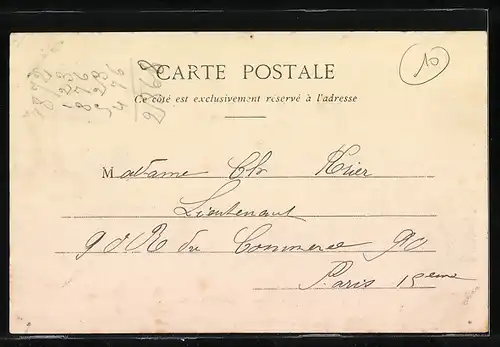 CARTE POSTALE
Ce côté est exclusivement réservé à l'adresse
10
Madame Ch
Lieutenant
90 R du Commerce 90
Paris 15eme